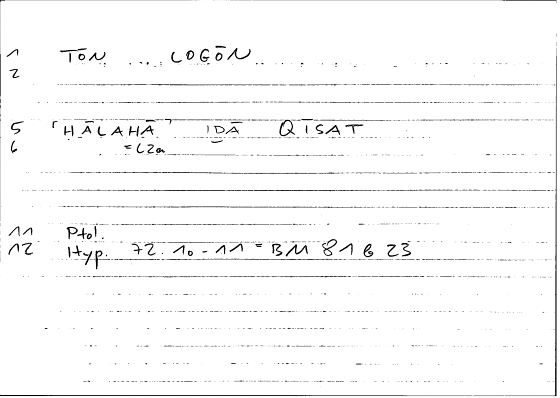 1 TŌN ... LOGŌN
2
5 ⸢HĀLAHĀ⸣ IDĀ QĪSAT
6 =L2a
11 Ptol.
12 Hyp. 72.10-11 = BM 81b23